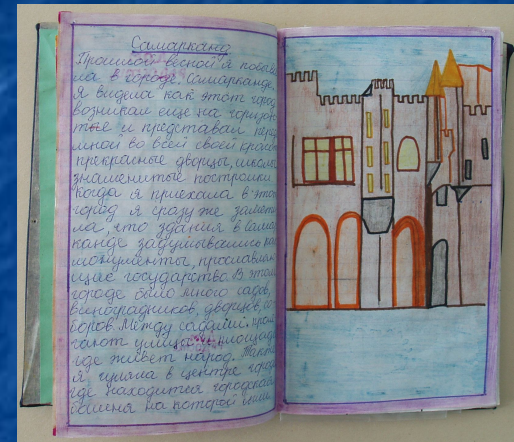 Самарканд
Прошлой весной я побыва
ла в городе Самарканде,
я видела как этот город
возникал еще на горизон
те и представал перед
мной во всей своей красе
прекрасные дворцы, школы
знаменитые постройки
когда я приехала в этот
город я сразу же замети
ла, что здания в Самар
канде задумывались как
монументы, прославляю
щие государство. В этом
городе было много садов,
виноградников, дворцов, со
боров. Между садами проле
гают улицы и площади
где живет народ. Также
я гуляла в центре города
где находится городская
башня на которой